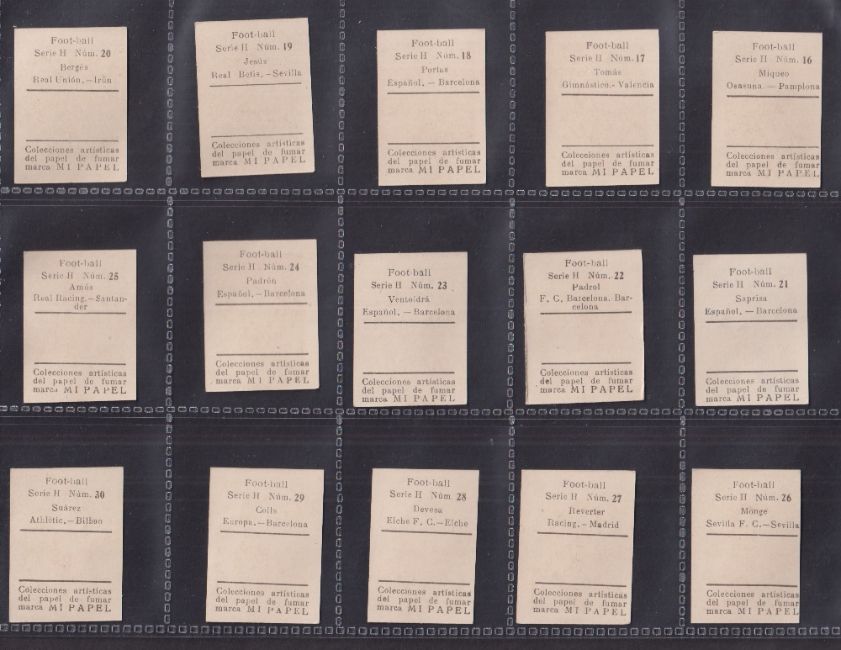 Foot-ball
Serie H Núm. 20
Bergés
Real Unión.—Irún
Colecciones artísticas
del papel de fumar
marca MI PAPEL
Foot-ball
Serie H Núm. 19
Jesús
Real Betis.—Sevilla
Colecciones artísticas
del papel de fumar
marca MI PAPEL
Foot-ball
Serie H Núm. 18
Portas
Español.—Barcelona
Colecciones artísticas
del papel de fumar
marca MI PAPEL
Foot-ball
Serie H Núm. 17
Tomás
Gimnástico.-Valencia
Colecciones artísticas
del papel de fumar
marca MI PAPEL
Foot-ball
Serie H Núm. 16
Miqueo
Osasuna.—Pamplona
Colecciones artísticas
del papel de fumar
marca MI PAPEL
Foot-ball
Serie H Núm. 25
Amós
Real Racing.—Santan-
der
Colecciones artísticas
del papel de fumar
marca MI PAPEL
Foot-ball
Serie H Núm. 24
Padrón
Español.—Barcelona
Colecciones artísticas
del papel de fumar
marca MI PAPEL
Foot-ball
Serie H Núm. 23
Ventoldrá
Español.—Barcelona
Colecciones artísticas
del papel de fumar
marca MI PAPEL
Foot-ball
Serie H Núm. 22
Padrol
F. C. Barcelona. Bar-
celona
Colecciones artísticas
del papel de fumar
marca MI PAPEL
Foot-ball
Serie H Núm. 21
Saprisa
Español.—Barcelona
Colecciones artísticas
del papel de fumar
marca MI PAPEL
Foot-ball
Serie H Núm. 30
Suárez
Athlétic.—Bilbao
Colecciones artísticas
del papel de fumar
marca MI PAPEL
Foot-ball
Serie H Núm. 29
Colls
Europa.—Barcelona
Colecciones artísticas
del papel de fumar
marca MI PAPEL
Foot-ball
Serie H Núm. 28
Devesa
Elche F. C.—Elche
Colecciones artísticas
del papel de fumar
marca MI PAPEL
Foot-ball
Serie H Núm. 27
Reverter
Racing.—Madrid
Colecciones artísticas
del papel de fumar
marca MI PAPEL
Foot-ball
Serie H Núm. 26
Monge
Sevilla F. C.—Sevilla
Colecciones artísticas
del papel de fumar
marca MI PAPEL